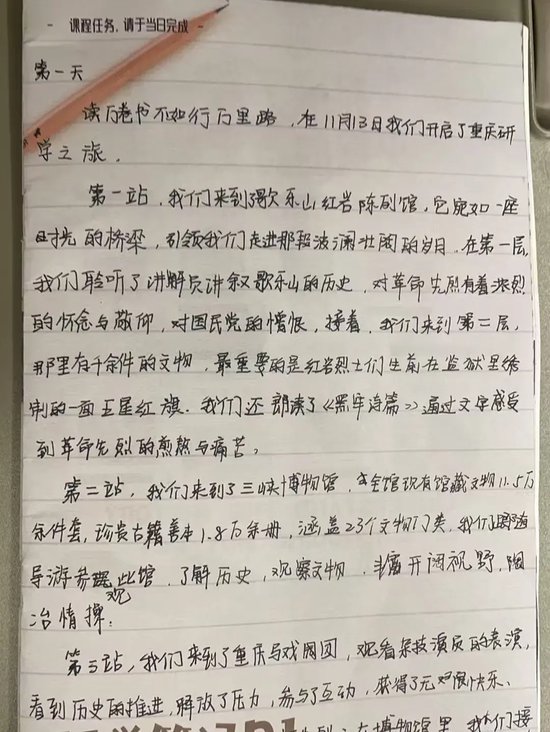 - 课程任务,请于当日完成 -
第一天
读万卷书不如行万里路,在11月13日我们开启了重庆研
学之旅.
第一站,我们来到了歌乐山红岩陈列馆,它宛如一座
时光的桥梁,引领我们走进那段波澜壮阔的岁月.在第一层,
我们聆听了讲解员讲叙歌乐山的历史,对革命先烈有着浓烈
的怀念与敬仰,对国民党的憎恨,接着,我们来到第二层,
那里有千余件的文物,最重要的是红岩烈士们生前在监狱里绣
制的一面五星红旗.我们还朗读了《黑牢诗篇》通过文字感受
到革命先烈的煎熬与痛苦。
第二站,我们来到了三峡博物馆,全馆现有馆藏文物11.5万
余件套,珍贵古籍善本1.8万余册,涵盖23个文物门类,我们跟随
导游参观此馆,了解历史,观察文物,开阔视野,陶
冶情操.
第三站,我们来到了重庆与戏阁团,观看杂技演员的表演,
看到历史的推进,解放了压力,参与了互动,获得了无限快乐.
博物馆里,我们接